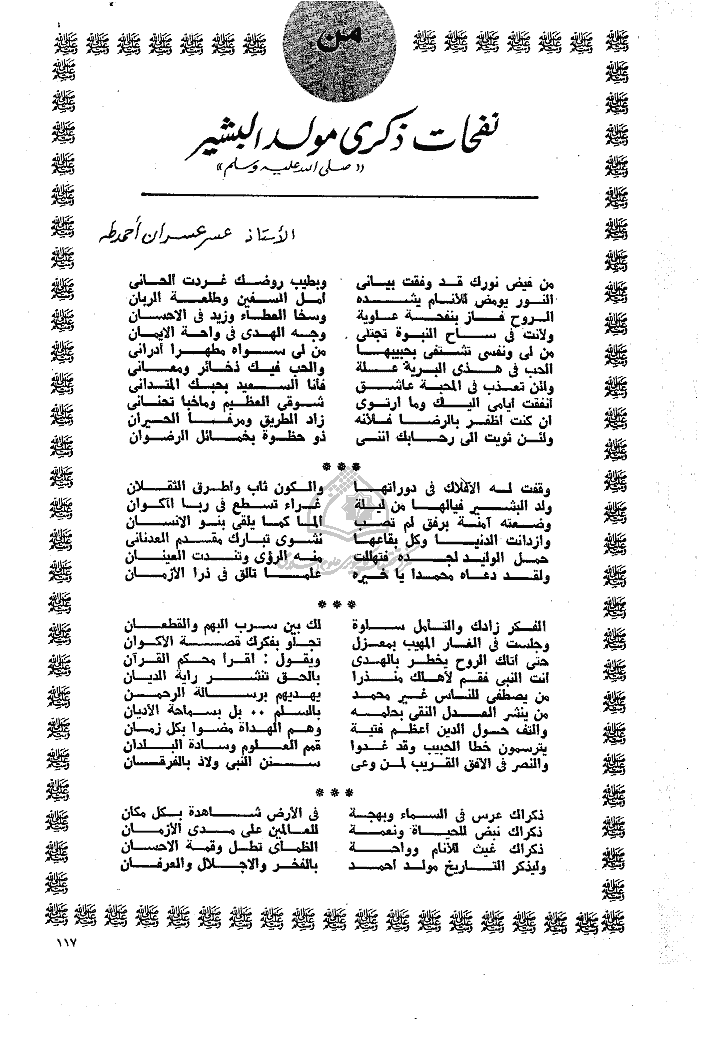 من
نفحات ذكرى مولد البشير
«صلى الله عليه وسلم»
الأستاذ عسر عسران أحمد طه
من فيض نورك قد وفقت بيانى وبطيب روضك غردت الحانى
النور يومض للأنام يشده أمل السفين وطلعة الربان
الروح فاز بنفحة علوية وسخا العطاء وزيد فى الاحسان
ولانت فى ساح النبوة تجتلى وجه الهدى فى واحة الايمان
من لى ونفسى تشتفى بحبيبها من لى سواه مطهرا أدرانى
الحب فى هذى البرية علة والحب فيك ذخائر ومعانى
ولئن تعذب فى المحبة عاشق فأنا السعيد بحبك المتدانى
أنفقت أيامى اليك وما ارتوى شوقى العظيم وماخبا تحنانى
ان كنت اظفر بالرضا فلأنه زاد الطريق ومرفأ الحيران
ولئن ثويت الى رحابك اننى ذو حظوة بخمائل الرضوان
***
وقفت له الافلاك فى دوراتها والكون ثاب واطرق الثقلان
ولد البشير فيالها من ليلة غراء تسطع فى ربا الاكوان
وضعته آمنة برفق لم تصب الما كما يلقى بنو الانسان
وازدانت الدنيا وكل بقاعها نشوى تبارك مقدم العدنانى
حمل الوليد لجده فتهللت منه الرؤى وتندت العينان
ولقد دعاه محمدا يا خيره علما تالق فى ذرا الأزمان
***
الفكر زادك والتأمل سلوة لك بين سرب البهم والقطعان
وجلست فى الغار المهيب بمعزل تجلو بفكرك قصة الاكوان
حتى اتاك الروح يخطر بالهدى ويقول : اقرأ محكم القرآن
انت النبى فقم لأهلك منذرا بالحق تنشر راية الديان
من يصطفى للناس غير محمد يهديهم برسالة الرحمن
من ينشر العدل النقى بحلمه بالسلم ٠٠ بل بسماحة الأديان
والتف حول الدين أعظم فتية وهم الهداة مضوا بكل زمان
يترسمون خطا الحبيب وقد غدوا قمم العلوم وسادة البلدان
والنصر فى الافق القريب لمن وعى سنن النبى ولاذ بالفرقان
***
ذكراك عرس فى السماء وبهجة فى الأرض شاهدة بكل مكان
ذكراك نبض للحياة ونعمة للعالمين على مدى الأزمان
ذكراك غيث للأنام وواحة الظمأى تظل وقمة الاحسان
وليذكر التاريخ مولد احمد بالفخر والاجلال والعرفان
١١٧